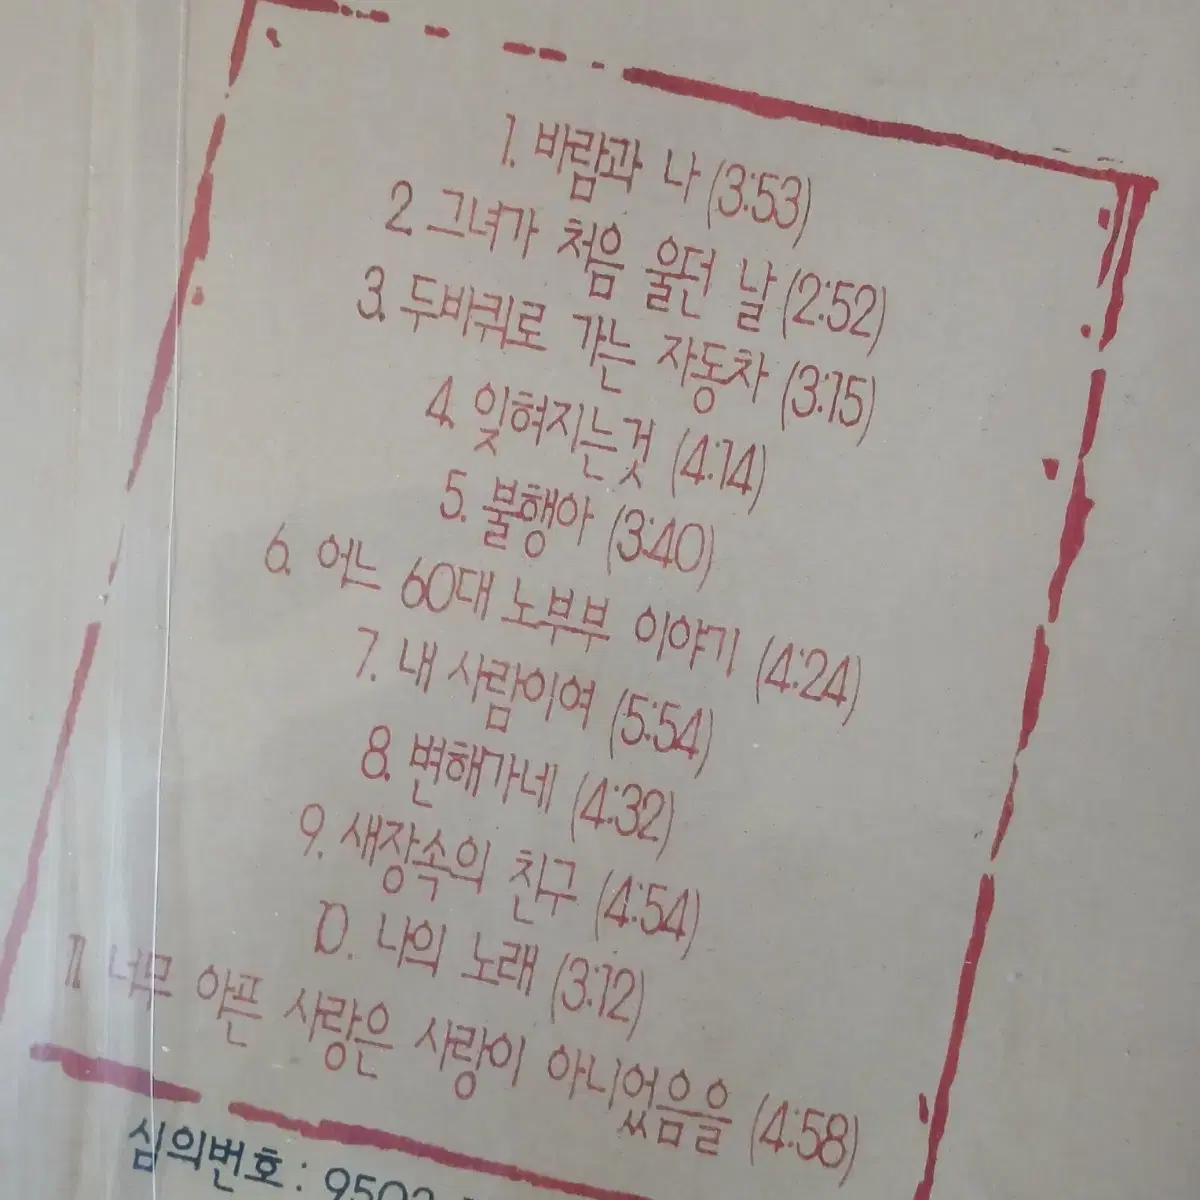 1. 바람과 나 (3:53)
2. 그녀가 처음 울던 날 (2:52)
3. 두바퀴로 가는 자동차 (3:15)
4. 잊혀지는것 (4:14)
5. 불행아 (3:40)
6. 어느 60대 노부부 이야기 (4:24)
7. 내 사람이여 (5:54)
8. 변해가네 (4:32)
9. 새장속의 친구 (4:54)
10. 나의 노래 (3:12)
11. 너무 아픈 사랑은 사랑이 아니었음을 (4:58)
심의번호 :